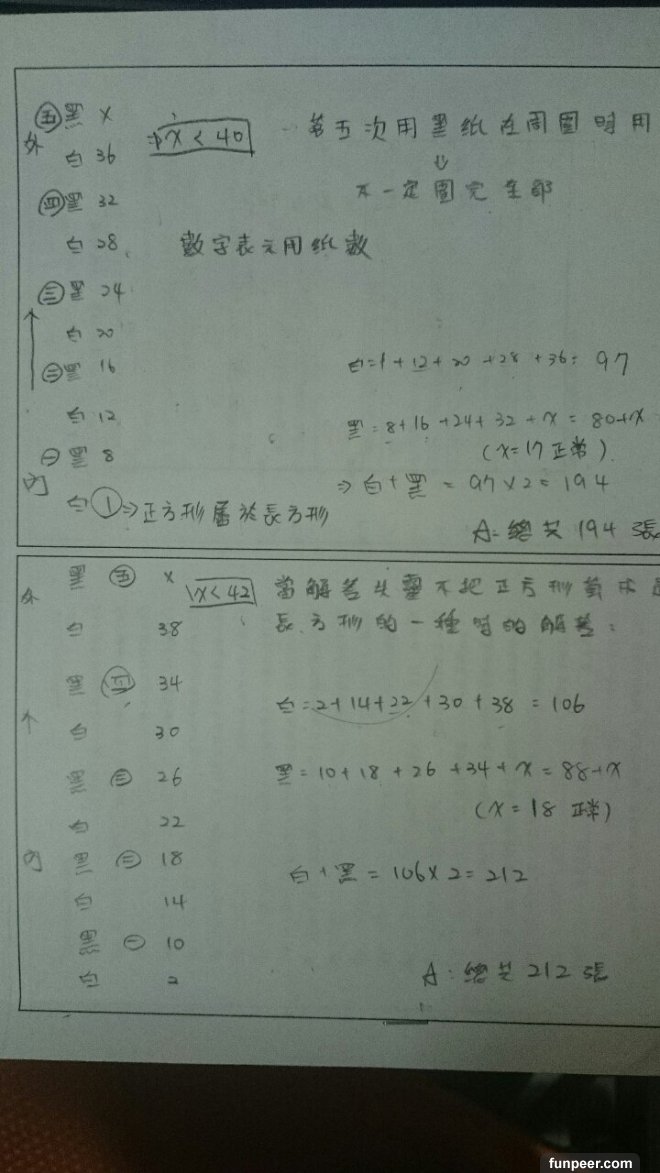 ㊄黑 x
外
白 36
⇒ x < 40
第五次用黑紙在周圍時用
⇓
不一定圍完全部
㊃黑 32
白 28
數字表示用紙數
㊂黑 24
白 20
㊁黑 16
白 12
㊀黑 8
內
白 ① ⇒ 正方形屬於長方形
白=1+12+20+28+36= 97
黑=8+16+24+32+x = 80+x
(x=17 正常)
⇒ 白+黑 = 97×2=194
A: 總共 194 張
外
黑 ㊄ x
x < 42
白 38
黑 ㊃ 34
白 30
黑 ㊂ 26
白 22
內
黑 ㊁ 18
白 14
黑 ㊀ 10
白 2
當解答失靈不把正方形算成是
長方形的一種時的解答:
白=2+14+22+30+38 = 106
黑=10+18+26+34+x=88+x
(x=18 正常)
白+黑 = 106×2=212
A: 總共 212 張
funpeer.com